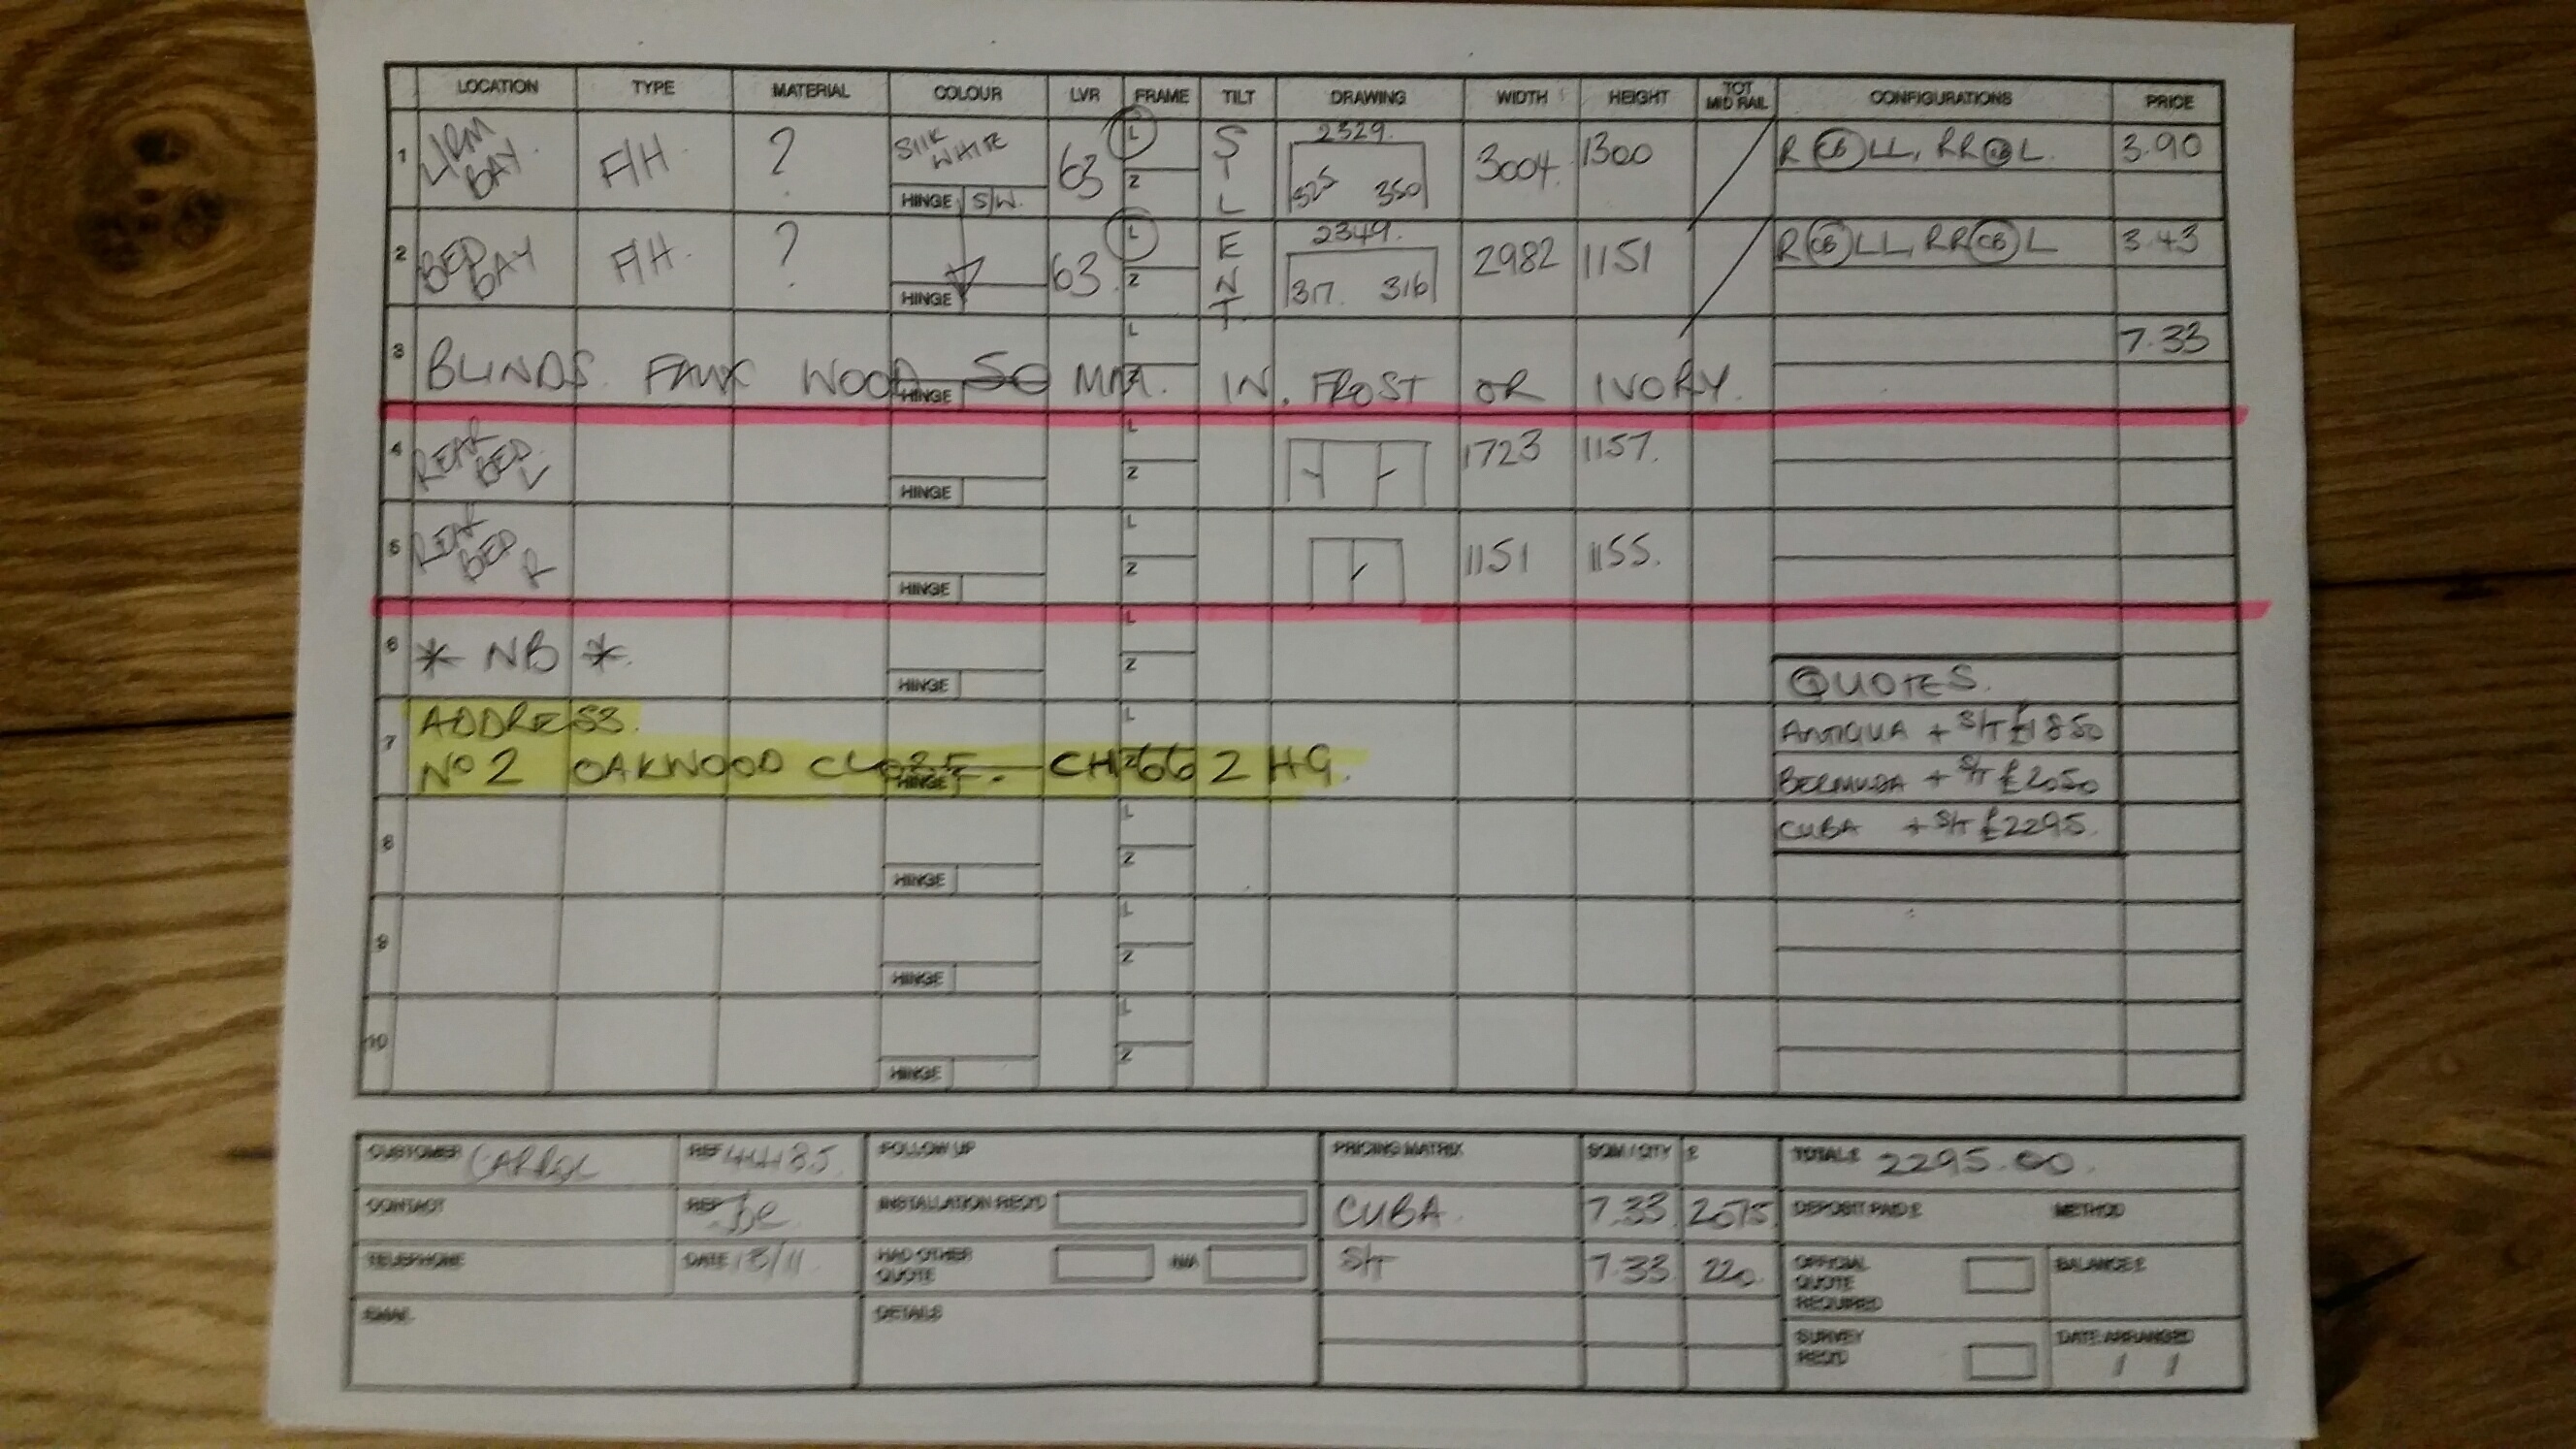 LOCATION TYPE MATERIAL COLOUR LVR FRAME TILT DRAWING WIDTH HEIGHT TOT MID RAIL CONFIGURATIONS PRICE
1 L/RM BAY. F/H. ? SILK WHITE HINGE S/W. 63 L Z SILENT. 2329. 525 350 3004. 1300 R CB LL, RR CB L. 3.90
2 BED BAY F/H. ? HINGE 63. L Z 2349. 317. 316 2982 1151 R CB LL, RR CB L 3.43
3 HINGE L 7.33
BLINDS. FAUX WOOD 50 MM. IN. FROST OR IVORY.
4 REAR BED L HINGE L Z 1723 1157.
5 REAR BED R HINGE L Z 1151 1155.
6 * NB *. HINGE L Z
QUOTES.
7 ADDRESS. L
ANTIQUA + S/T £1850
No 2 OAKWOOD CLOSE. CH66 2HG. HINGE Z
BERMUDA + S/T £2050
8 HINGE L Z
CUBA + S/T £2295.
9 HINGE L Z
10 HINGE L Z
CUSTOMER CARROL REF 44185. FOLLOW UP PRICING MATRIX SQM / QTY £ TOTAL £ 2295.00.
CONTACT REP Joe INSTALLATION REQ'D CUBA. 7.33 2075. DEPOSIT PAID £ METHOD
TELEPHONE DATE 13/11 HAD OTHER QUOTE N/A S/T 7.33 220. OFFICIAL QUOTE REQUIRED BALANCE £
EMAIL DETAILS SURVEY REQ'D DATE ARRANGED / /